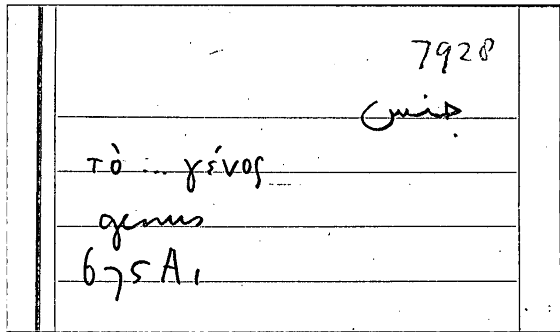 7928
جنس
τὸ ... γένος
genus
675A,